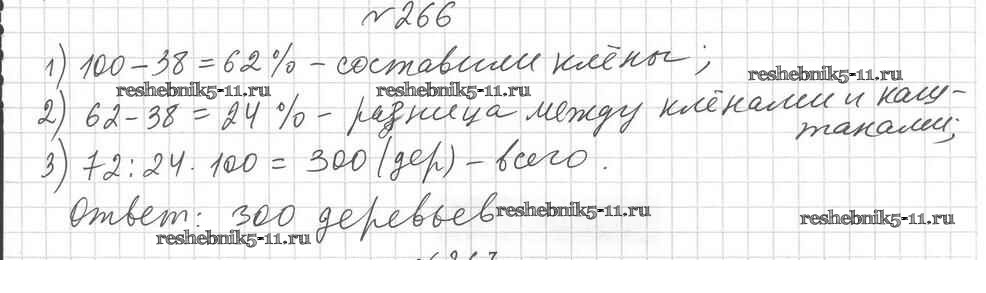 №266
1) 100-38=62% - составили клёны;
reshebnik5-11.ru
reshebnik5-11.ru reshebnik5-11.ru
2) 62-38=24% - разница между клёнами и каш-
танами;
3) 72:24·100=300 (дер) - всего.
Ответ: 300 деревьев
reshebnik5-11.ru reshebnik5-11.ru
reshebnik5-11.ru